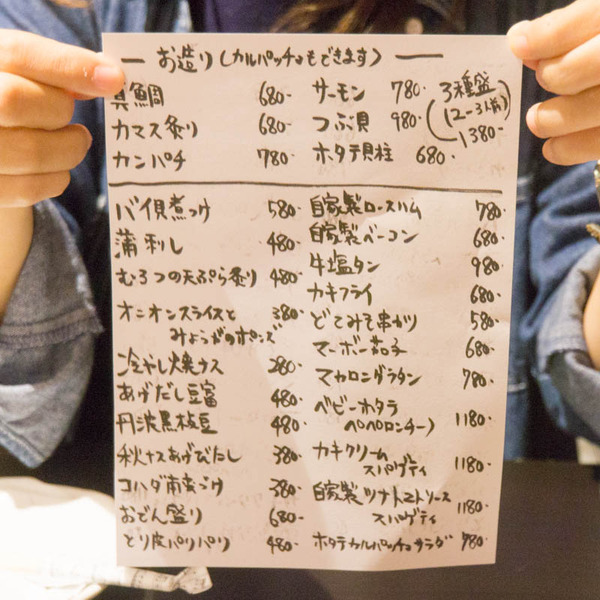 お造り(カルパッチョもできます)
真鯛 680-
カマス炙り 680-
カンパチ 780-
サーモン 780-
つぶ貝 980-
ホタテ貝柱 680-
3種盛
(2-3人前)
1380-
バイ貝煮つけ 580-
蒲刺し 480-
むろつの天ぷら炙り 480-
オニオンスライスと 380-
みょうがのポンズ
冷やし焼ナス 280-
あげだし豆富 480-
丹波黒枝豆 480-
秋ナスあげびたし 380-
コハダ南蛮づけ 380-
おでん盛り 680-
とり皮パリパリ 480-
自家製ロースハム 780-
自家製ベーコン 680-
牛塩タン 980-
カキフライ 680-
どてみそ串カツ 580-
マーボー茄子 680-
マカロニグラタン 780-
ベビーホタテ
ペペロンチーノ 1180-
カキクリーム
スパゲティ 1180-
自家製ツナトマトソース
スパゲティ 1180-
ホタテカルパッチョサラダ 780-